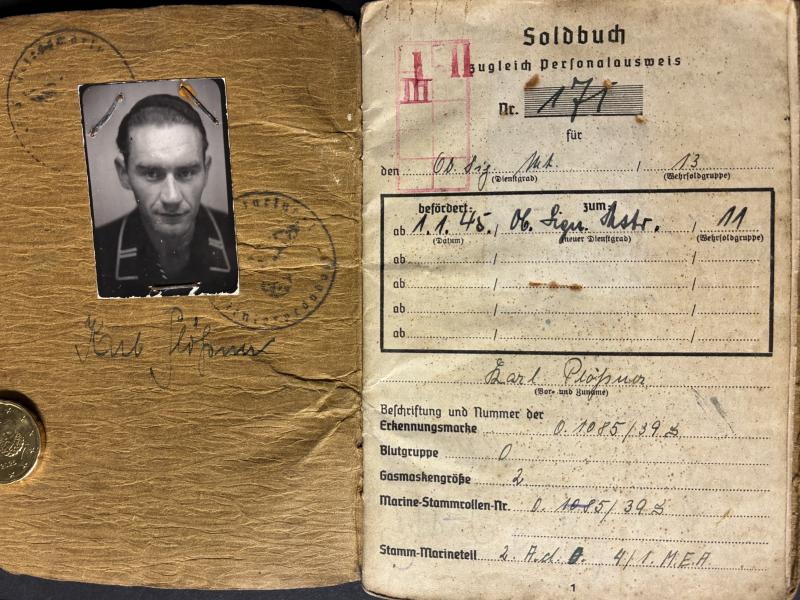 Karl Plößner
Soldbuch
zugleich Personalausweis
I II
III
Nr. 171
für
den Ob. Sig. Mt. / 13
(Dienstgrad) (Wehrsoldgruppe)
befördert zum
ab 1.1.45. / Ob. Sign. Mstr. / 11
(Datum) (neuer Dienstgrad) (Wehrsoldgruppe)
ab / /
ab / /
ab / /
ab / /
Karl Plößner
(Vor- und Zuname)
Beschriftung und Nummer der
Erkennungsmarke O. 1085/39 S
Blutgruppe O
Gasmaskengröße 2
Marine-Stammrollen-Nr. O. 1085/39 S
Stamm-Marineteil 2. A.d.O. 4/1. M.E.A.
1